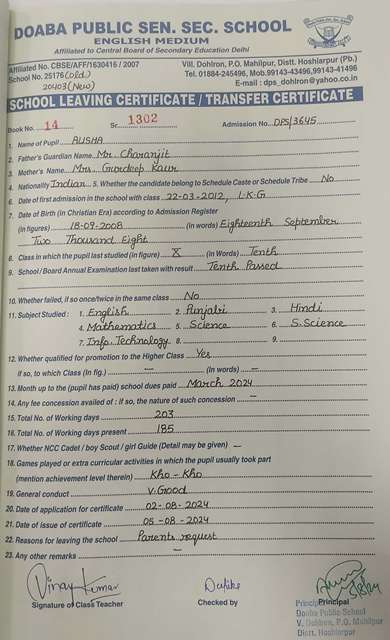 DOABA PUBLIC SEN. SEC. SCHOOL
ENGLISH MEDIUM
Affiliated to Central Board of Secondary Education Delhi
Affiliated No. CBSE/AFF/1630416 / 2007
Vill. Dohlron, P.O. Mahilpur, Distt. Hoshiarpur (Pb.)
School No. 25176 (old)
Tel. 01884-245496, Mob.99143-43496,99143-41496
20403 (New)
E-mail : dps_dohlron@yahoo.co.in
SCHOOL LEAVING CERTIFICATE / TRANSFER CERTIFICATE
Book No. 14 Sr. 1302 Admission No. DPS/3645
1. Name of Pupil ALISHA
2. Father's Guardian Name Mr. Charanjit
3. Mother's Name Mrs. Gurdeep Kaur
4. Nationality Indian 5. Whether the candidate belong to Schedule Caste or Schedule Tribe No
6. Date of first admission in the school with class 22-03-2012, L.K.G
7. Date of Birth (in Christian Era) according to Admission Register
(in figures) 18-09-2008 (in words) Eighteenth September
Two Thousand Eight
8. Class in which the pupil last studied (in figure) X (in Words) Tenth
9. School / Board Annual Examination last taken with result Tenth Passed
10. Whether failed, if so once/twice in the same class No
11. Subject Studied : 1. English 2. Punjabi 3. Hindi
4. Mathematics 5. Science 6. S.Science
7. Info. Technology 8. 9.
12. Whether qualified for promotion to the Higher Class Yes
if so, to which Class (in fig.) — (in words) —
13. Month up to the (pupil has paid) school dues paid March 2024
14. Any fee concession availed of : if so, the nature of such concession —
15. Total No. of Working days 203
16. Total No. of Working days present 185
17. Whether NCC Cadet / boy Scout / girl Guide (Detail may be given) —
18. Games played or extra curricular activities in which the pupil usually took part
(mention achievement level therein) Kho-Kho
19. General conduct V.Good
20. Date of application for certificate 02-08-2024
21. Date of issue of certificate 05-08-2024
22. Reasons for leaving the school Parents request
23. Any other remarks —
Vinay Kumar
5/8/24
Signature of Class Teacher
Checked by
Principal
Principal
Doaba Public School
V. Dohlron, P.O. Mahilpur
Distt. Hoshiarpur